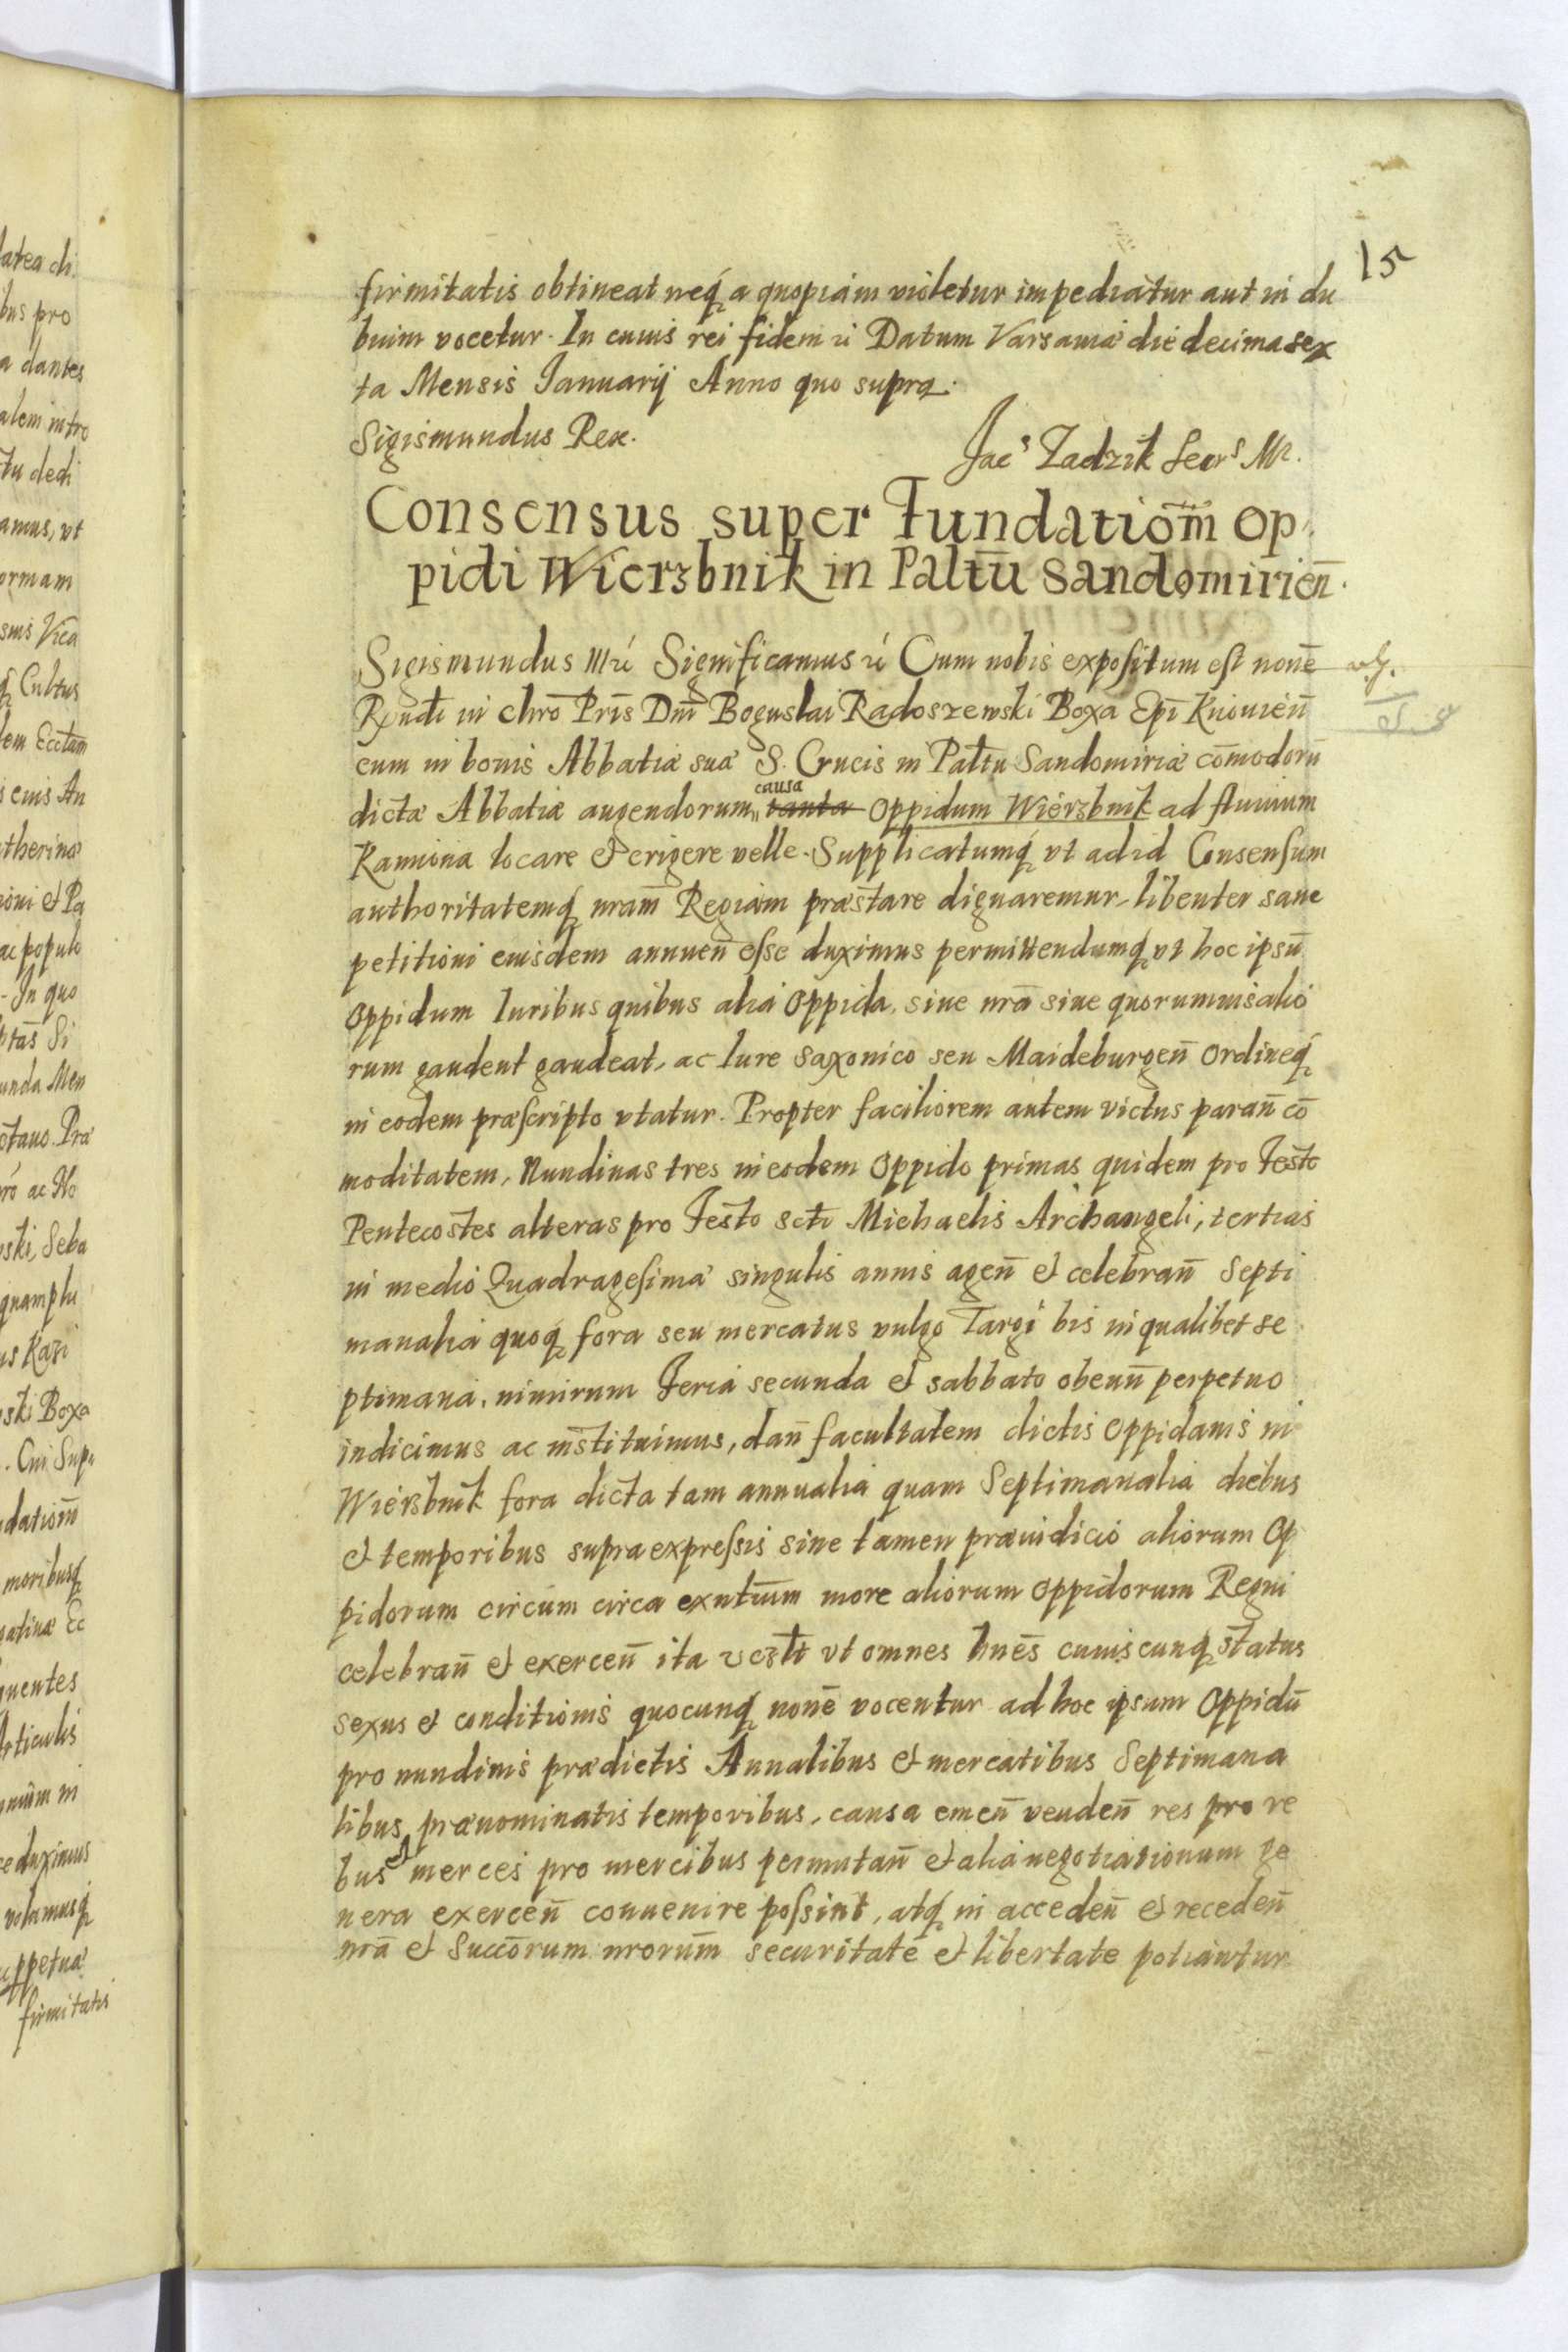 15
firmitatis obtineat neq́ a quopiam violetur impediatur aut in du
bium vocetur. In cuius rei fidem ū Datum Varsaviæ die decima sex
ta Mensis Ianuarij Anno quo supra.
Sigismundus Rex.
Jacˢ Zadzik Secrˢ Mr.
Consensus super Fundatiom̄ Op
pidi Wierzbnik in Paltū Sandomirien̄.
Sigismundus IIItius Significamus ū Cum nobis expositum est noñe
Rxndi in chrō Pris̄ Dm̄ Boguslai Radoszewski Boxa Epī Kiiovien̄
eum in bonis Abbatiæ suæ S. Crucis in Paltū Sandomiriæ cōmodorū
causa
dictæ Abbatiæ augendorum, tanta oppidum Wierzbnik ad fluvium
Kamiona locare et erigere velle. Supplicatumq́ vt ad id Consensum
authoritatemq́ nram̄ Regiam præstare dignaremur, libenter sane
petitioni eiusdem annuen̄ esse duximus permittendumq́ vt hoc ipsū
oppidum Iuribus quibus alia oppida, sive nrā sive quorumvis alio
rum gaudent gaudeat, ac Iure Saxonico seu Maideburgen̄ ordineq́
in eodem præscripto vtatur. Propter faciliorem autem victus paran̄ cō
moditatem, Nundinas tres in eodem Oppido primas quidem pro Festo
Pentecostes alteras pro Festo scti Michaelis Archangeli, tertias
in medio Quadragesimæ singulis annis agen̄ et celebran̄ Septi
manalia quoq́ fora seu mercatus vulgo Targi bis in qualibet se
ptimana, nimirum Feria secunda et sabbato obeun̄ perpetuo
indicimus ac instituimus, dan̄ facultatem dictis Oppidanis in
Wierzbnik fora dicta tam annualia quam Septimanalia diebus
et temporibus supraexpressis sine tamen præiudicio aliorum Op
pidorum circum circa exntium more aliorum oppidorum Regni
celebran̄ et exercen̄ ita vczlt vt omnes hnēs cuiuscunq́ status
sexus et conditionis quocunq́ noñe vocentur ad hoc ipsum Oppidū
pro nundinis prædictis Annalibus et mercatibus Septimana
libus prænominatis temporibus, causa emen̄ venden̄ res pro re
bus et merces pro mercibus permutan̄ et alia negotiationum ge
nera exercen̄ convenire possint, atq́ in acceden̄ et receden̄
nrā et Succōrum nrorum̄ securitate et libertate potiantur